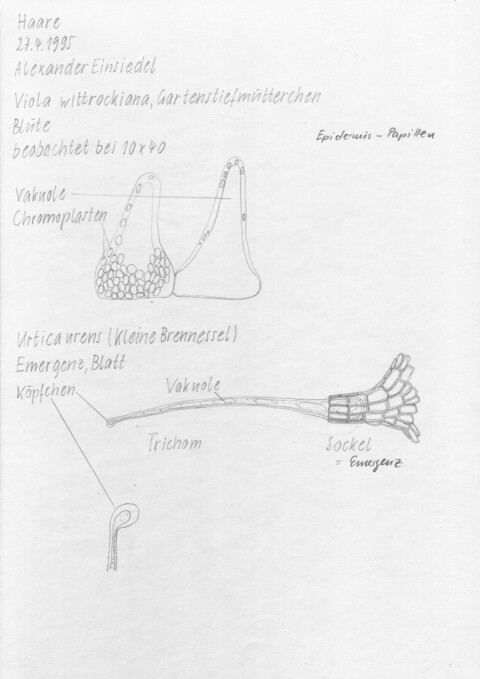 Haare
27.4.1995
Alexander Einsiedel
Viola wittrockiana, Gartenstiefmütterchen
Blüte
beobachtet bei 10x40
Epidermis - Papillen
Vakuole
Chromoplasten
Urtica urens (Kleine Brennessel)
Emergenz, Blatt
Köpfchen
Vakuole
Trichom
Sockel
= Emergenz